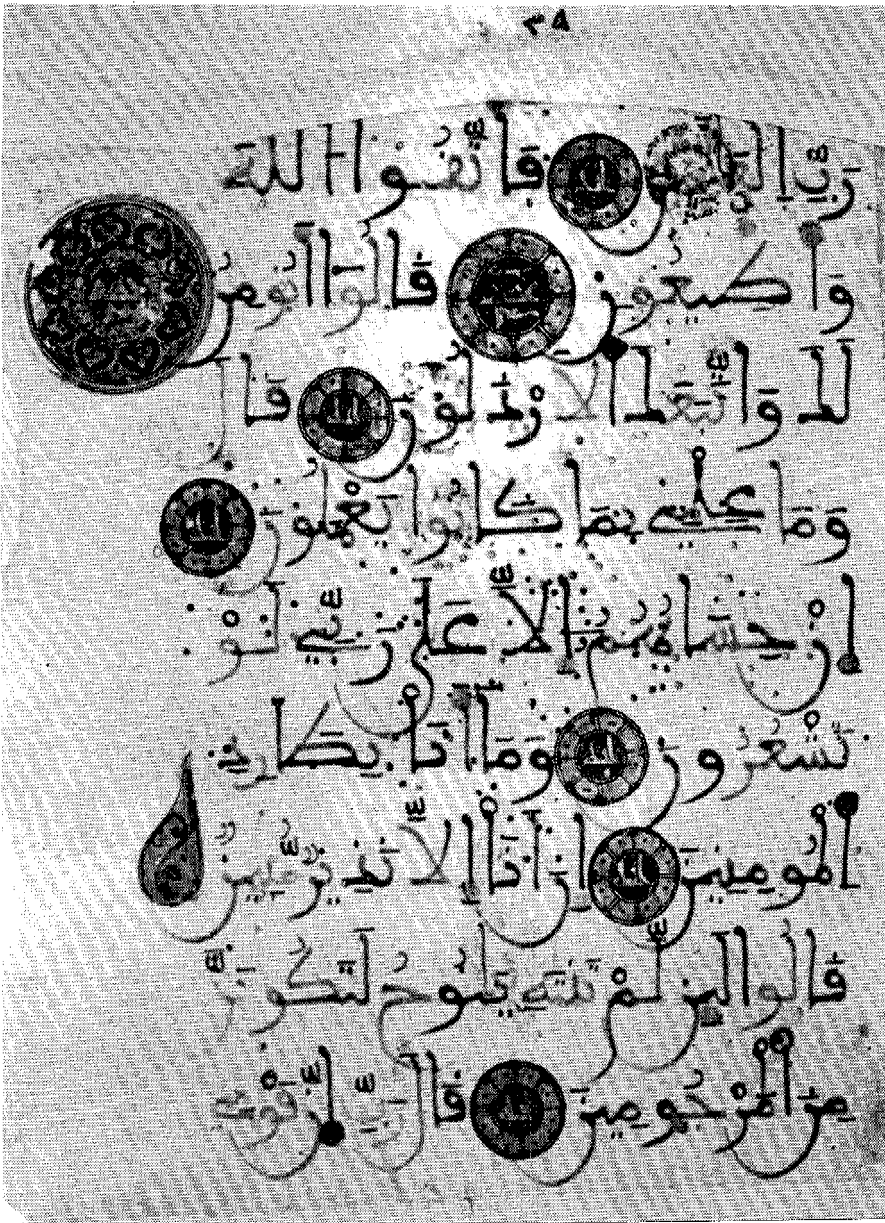 ٣٨
رب العلمين فاتقوا الله
واطيعون قالوا انومن
لك واتبعك الارذلون قال
وما علمي بما كانوا يعملون
ان حسابهم الا على ربي لو
تشعرون وما انا بطارد
المومنين ان انا الا نذير مبين
قالوا لين لم تنته ينوح لتكونن
من المرجومين قال رب ان قومي